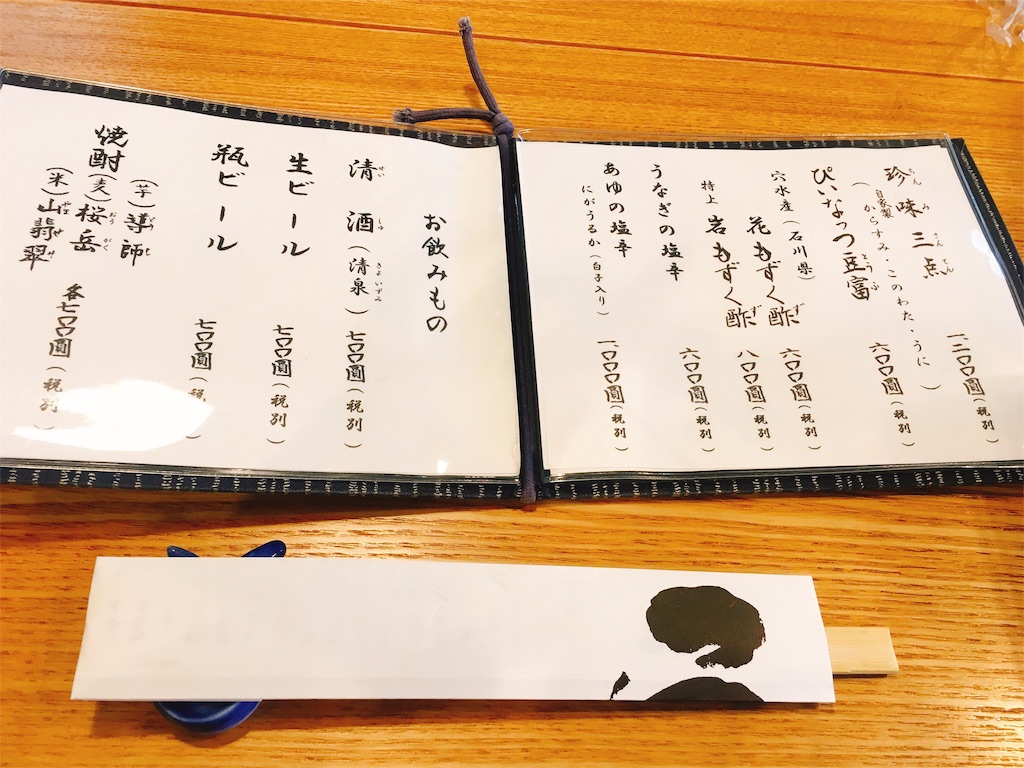 珍味三点 一、二〇〇圓(税別)
ちんみさんてん
(自家製からすみ・このわた・うに)
ぴぃなっつ豆富 六〇〇圓(税別)
とうふ
穴水産(石川県)
花もずく酢 六〇〇圓(税別)
ず
特上 岩もずく酢 八〇〇圓(税別)
ず
うなぎの塩辛 六〇〇圓(税別)
あゆの塩辛 一、〇〇〇圓(税別)
にがうるか(白子入り)
お飲みもの
清酒(清泉) 七〇〇圓(税別)
せいしゅ きよいずみ
生ビール 七〇〇圓(税別)
瓶ビール 七〇〇圓(税
焼酎 (芋)導師
どし
(麦)桜岳
おうがく
(米)山翡翠 各七〇〇圓(税別)
やませ